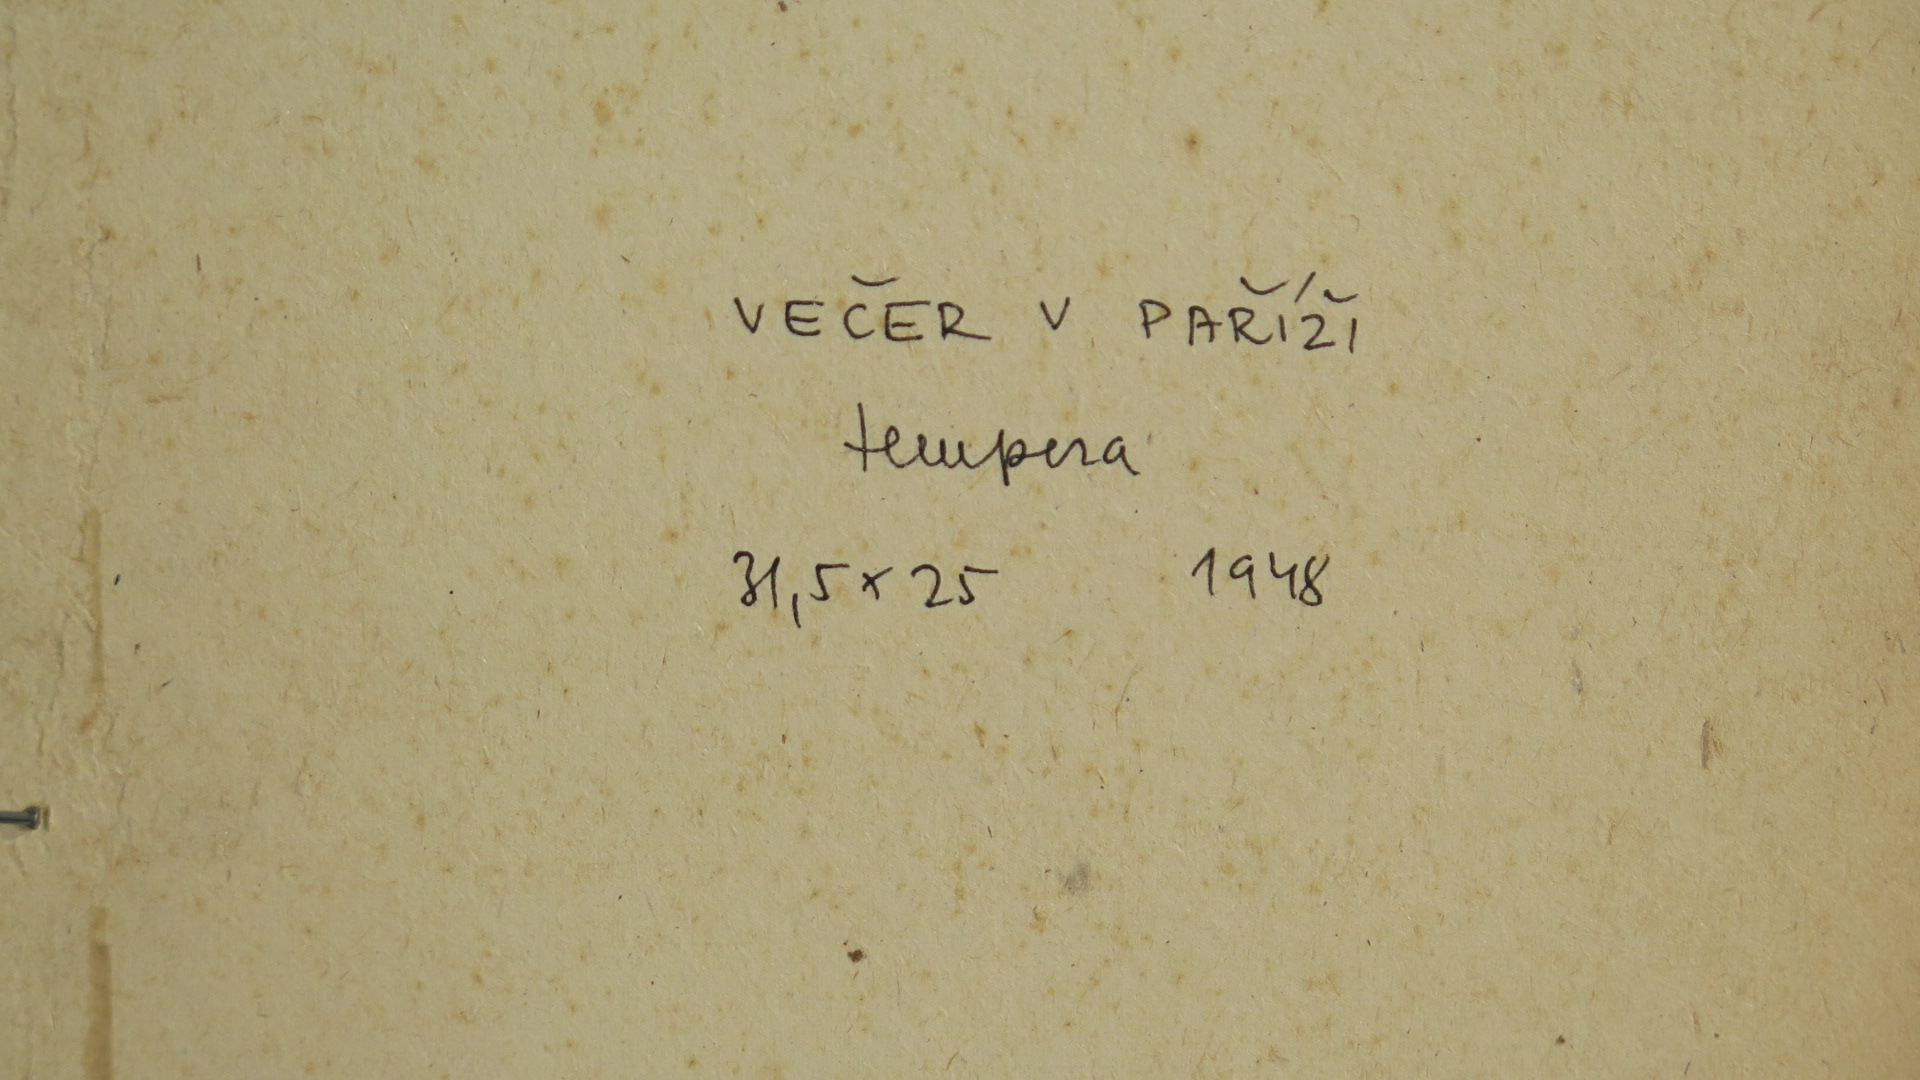 VEČER V PAŘÍŽI
tempera
31,5 x 25 1948